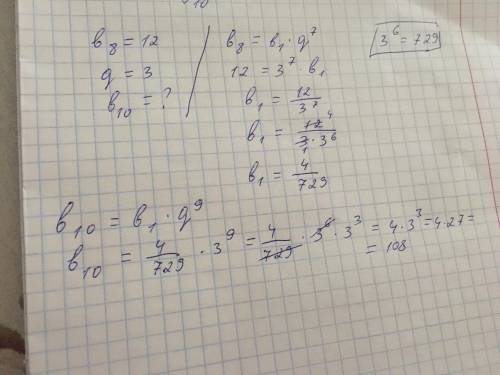 b₈ = 12
q = 3
b₁₀ = ?
b₈ = b₁ · q⁷
12 = 3⁷ · b₁
b₁ = 12/3⁷
b₁ = 12⁴/(3₁ · 3⁶)
b₁ = 4/729
3⁶ = 729
b₁₀ = b₁ · q⁹
b₁₀ = 4/729 · 3⁹ = 4/729 · 3⁶ · 3³ = 4 · 3³ = 4 · 27 =
= 108